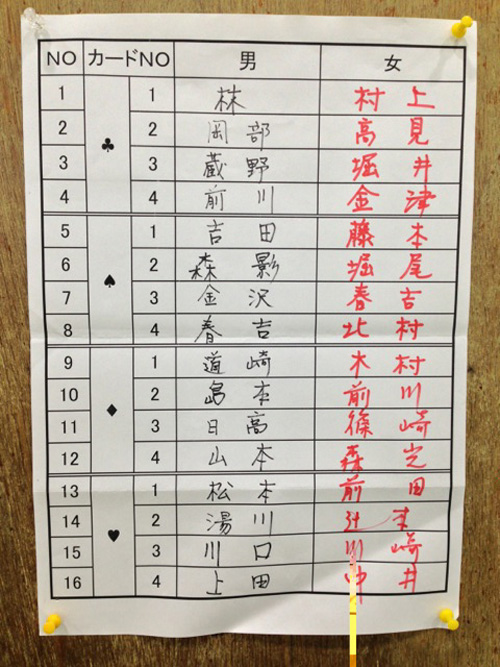 NO カードNO 男 女
1 ♣ 1 林 村上
2 2 岡部 高見
3 3 蔵野 堀井
4 4 前川 金津
5 ♠ 1 吉田 藤本
6 2 森影 堀尾
7 3 金沢 春吉
8 4 春吉 北村
9 ♦ 1 道崎 木村
10 2 島本 前川
11 3 日高 篠崎
12 4 山本 森
13 ♥ 1 松本 前田
14 2 湯川
15 3 川口 川崎
16 4 上田 井